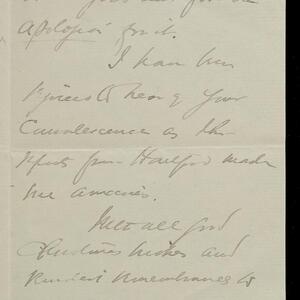 apologies for it.
I have been
rejoiced to hear of your
Convalescence as the
reports from Hartford made
me anxious.
With all good
Christmas wishes and
kindest remembrances to